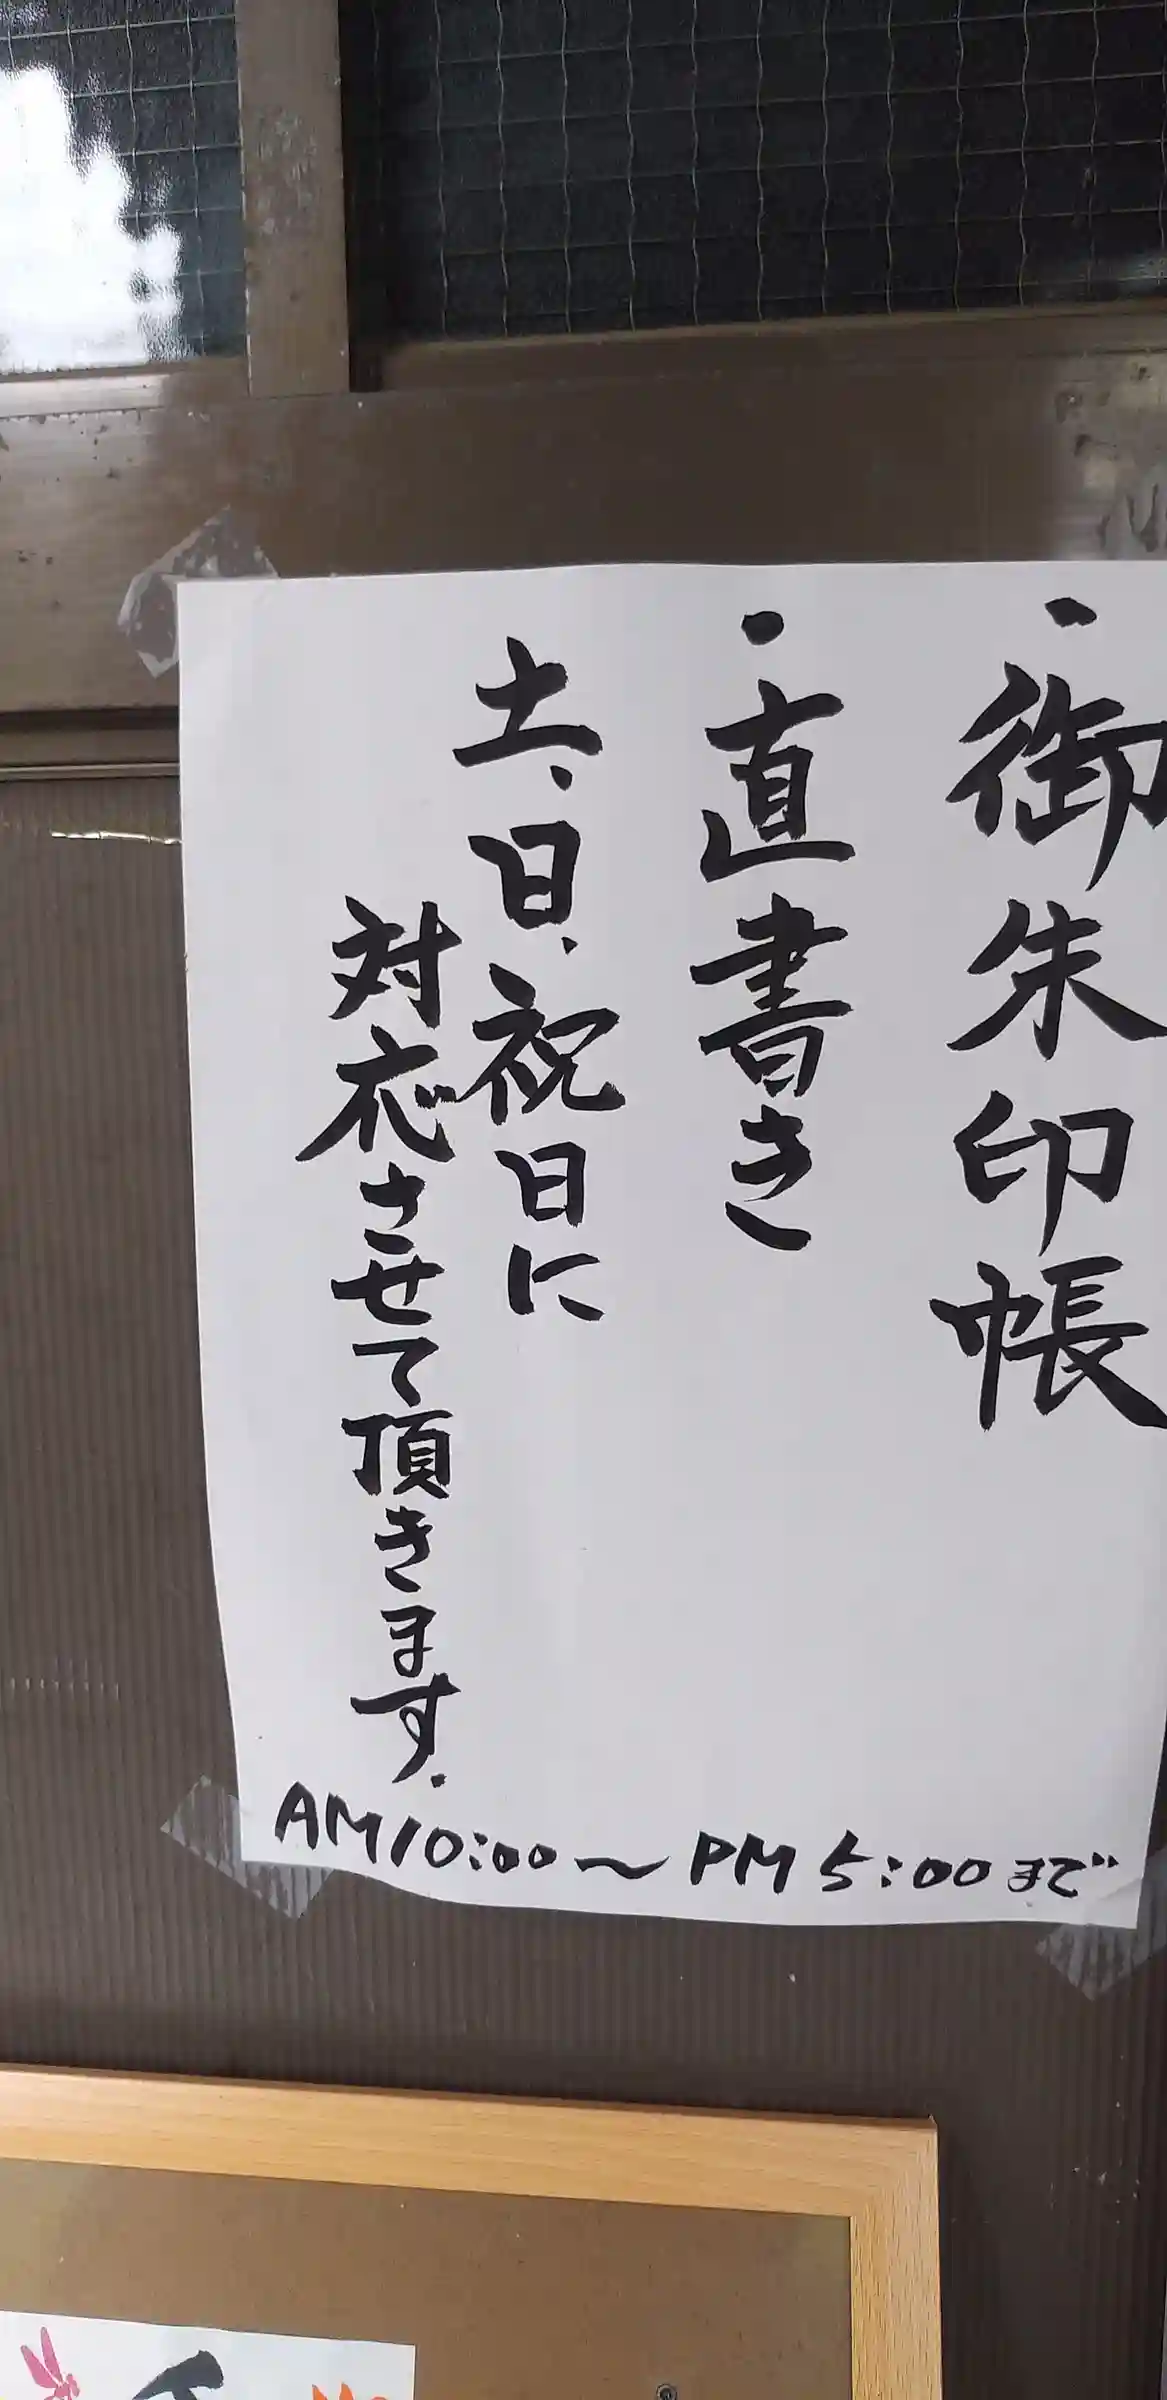 ・御朱印帳
・直書き
土、日、祝日に
対応させて頂きます.
AM10:00〜PM5:00まで